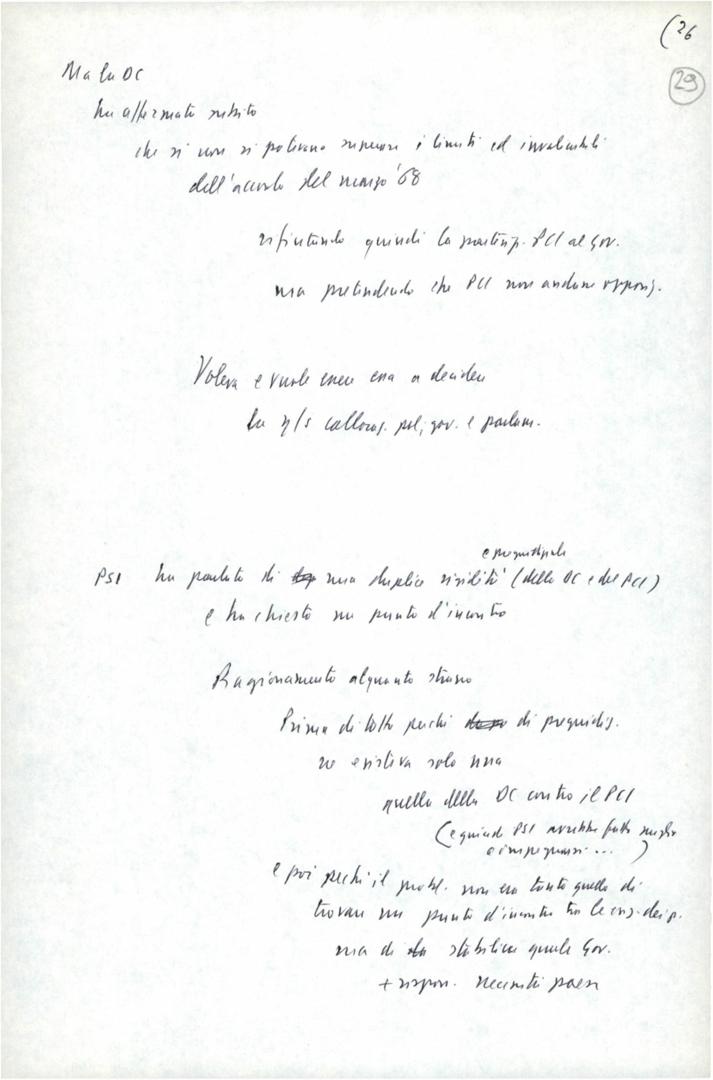 (26
29
Ma la DC
ha affermato subito
che si non si potevano superare i limiti ed invalicabili
dell'accordo del marzo '68
rifiutando quindi la partecip. PCI al Gov.
ma pretendendo che PCI non andasse oppos.
Voleva e vuole essere essa a decidere
la n/s collocaz. pol, gov. e parlam.
e pregiudiziale
PSI ha parlato di una duplice rigidità (della DC e del PCI)
e ha chiesto un punto d'incontro
Ragionamento alquanto strano
Prima di tutto perché di pregiudiz.
ne esisteva solo una
quella della DC contro il PCI
(e quindi PSI avrebbe fatto meglio
a impegnarsi ... )
e poi perché il probl. non era tanto quello di
trovare un punto d'incontro tra le
ma di stabilire quale Gov.
+ rispon. necessità paese